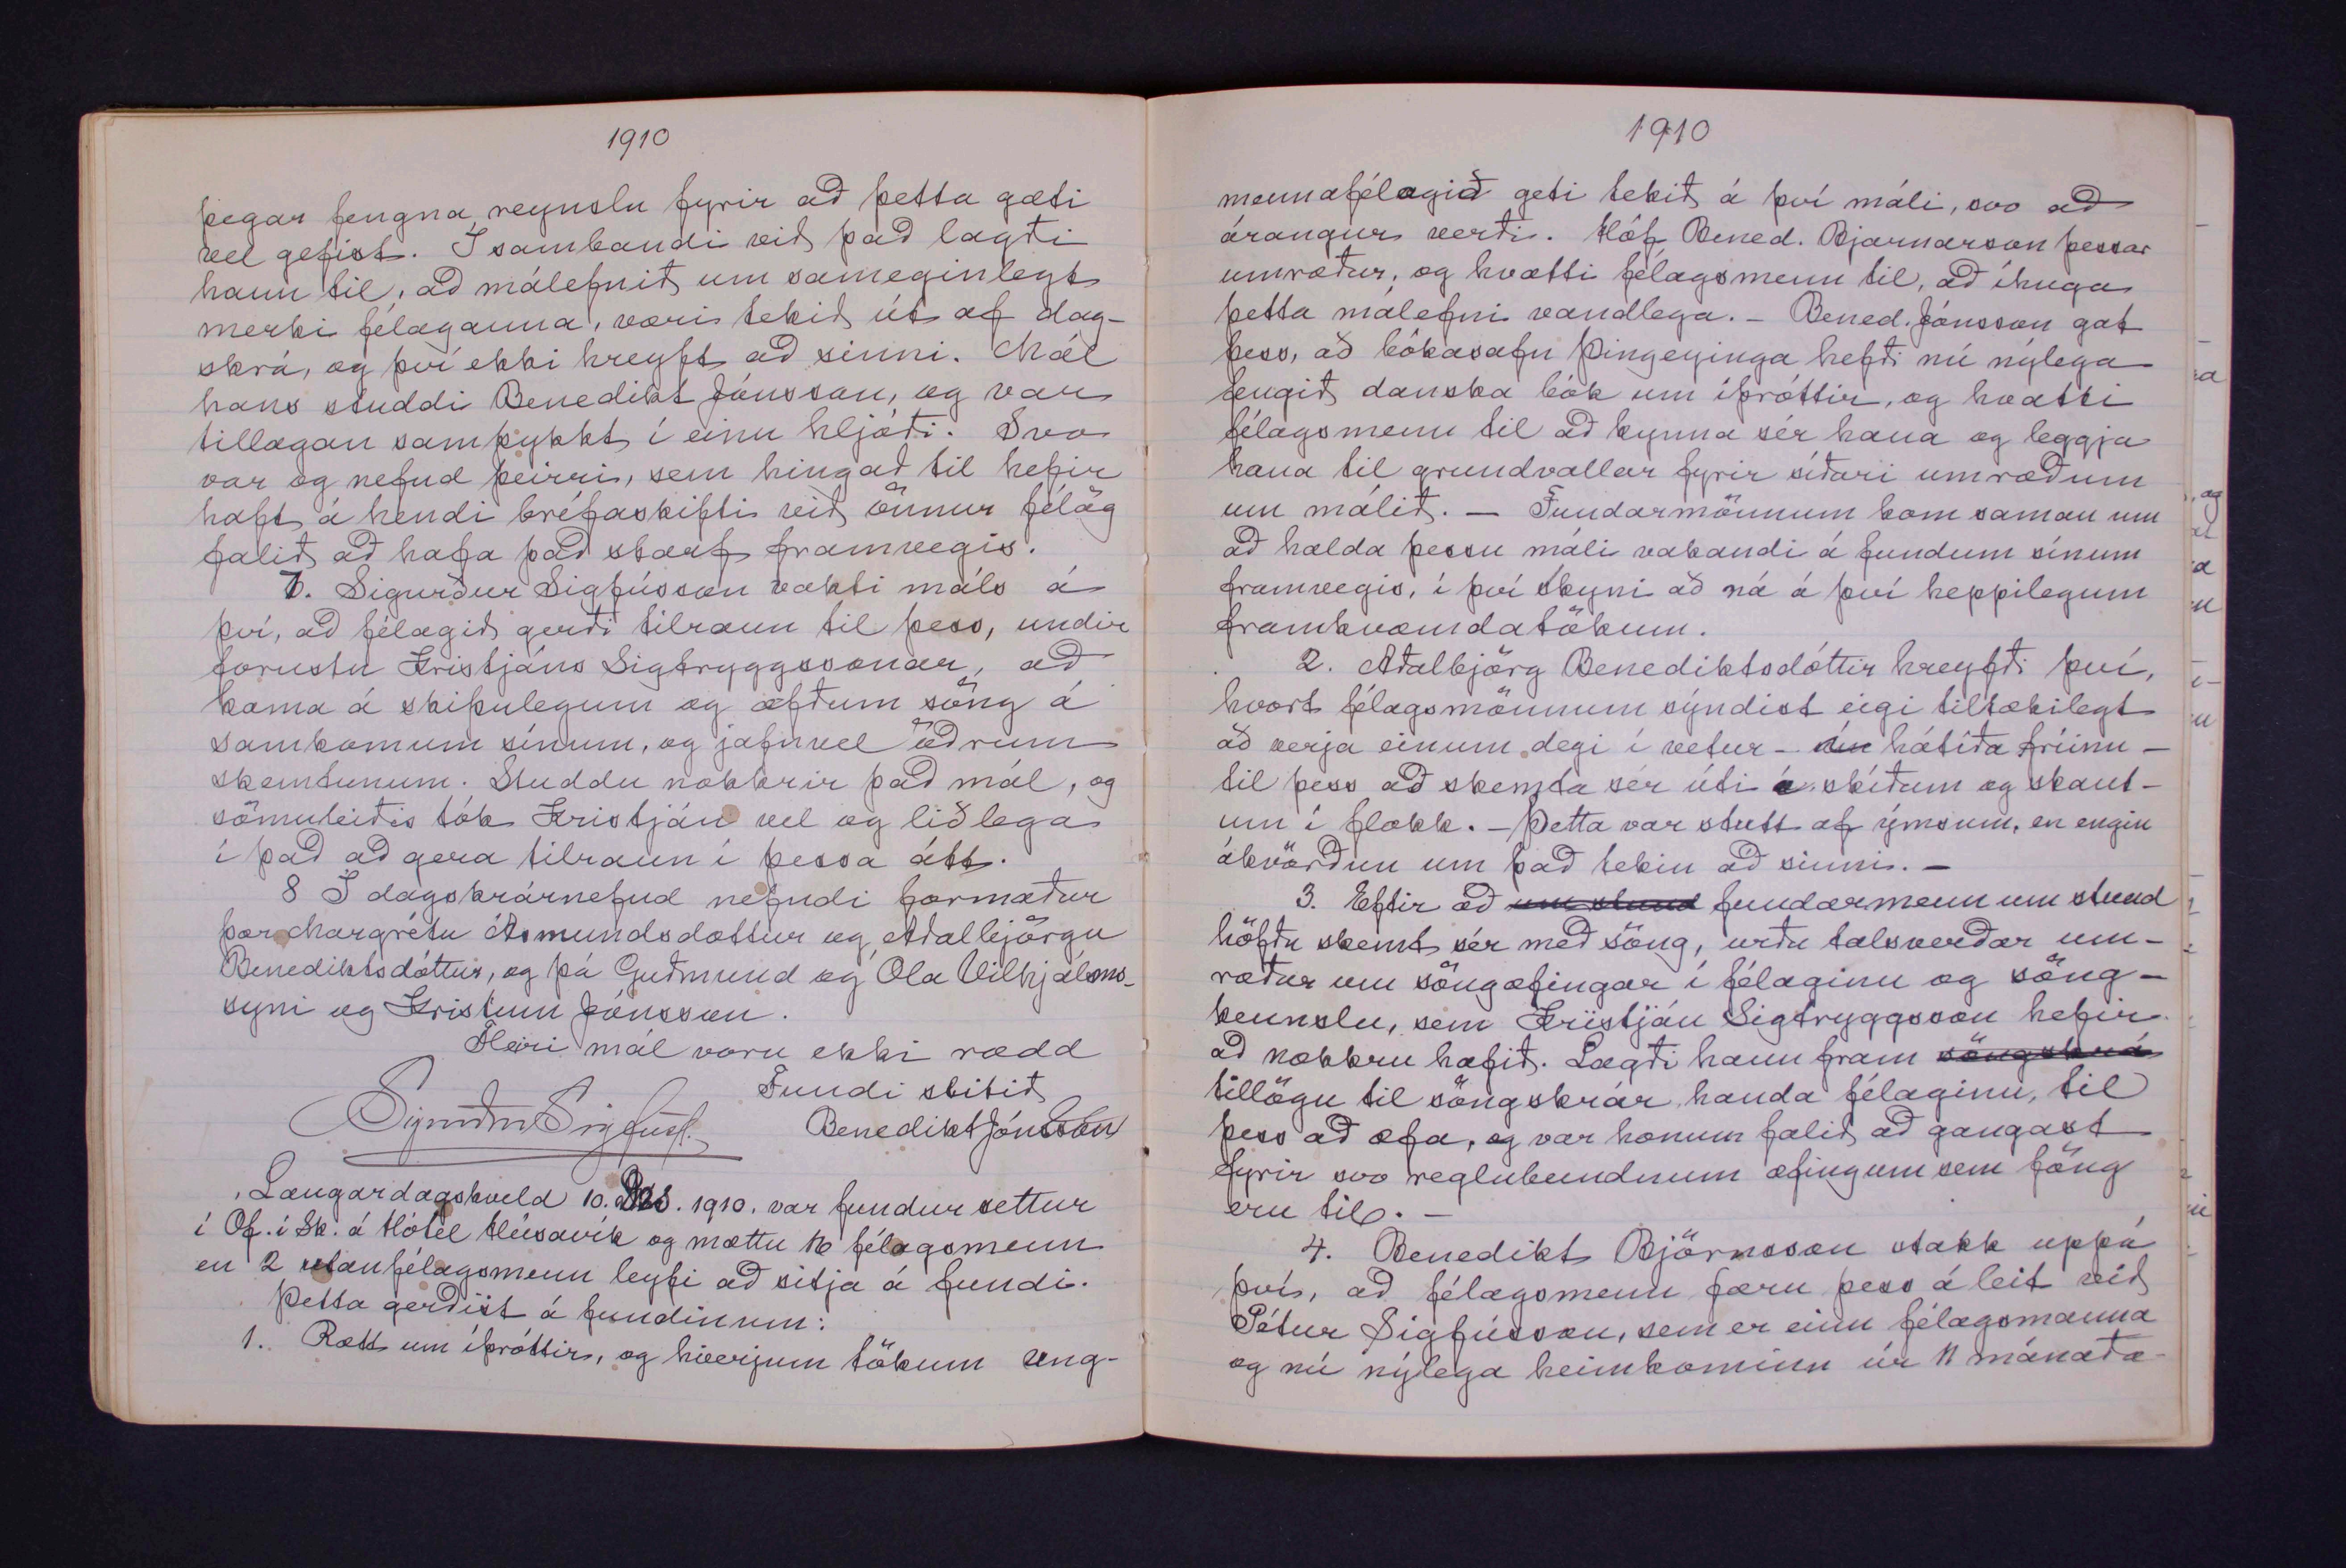 1910
þegar fengna reynslu fyrir að þetta gæti
vel gefist. Í sambandi við það lagði
hann til, að málefnið um sameginlegt
merki félaganna, væri tekið út af dag-
skrá, og því ekki hreyft að sinni. Mál
hans studdi Benedikt Jónsson, og var
tillagan samþykkt í einu hljóði. Svo
var og nefnd þeirri, sem hingað til hefir
haft á hendi bréfaskifti við önnur félög
falið að hafa það starf framvegis.
7. Sigurður Sigfússon vakti máls á
því, að félagið gerði tilraun til þess, undir
forustu Kristjáns Sigtryggssonar, að
koma á skipulegum og æfðum söng á
samkomum sínum, og jafnvel öðrum
skemtunum. Studdu nokkrir það mál, og
sömuleiðis tók Kristján vel og liðlega
í það að gera tilraun í þessa átt.
8 Í dagskrárnefnd nefndi formaður
þær Margrétu Ásmundsdóttur og Aðalbjörgu
Benediktsdóttur, og þá Guðmund og Óla Vilhjálms-
syni og Kristinn Jónsson.
Fleiri mál voru ekki rædd
Fundi slitið
Sigurður Sigfúss. Benedikt Jónsson
Laugardagskveld 10. Des. 1910. var fundur settur
í Of. í Sk. á Hótel Húsavík og mættu 16 félagsmenn
en 2 utanfélagsmenn leyfi að sitja á fundi.
Þetta gerðist á fundinum:
1. Rætt um íþróttir, og hverjum tökum ung-
1910
mennafélagið geti tekið á því máli, svo að
árangur verði. Hóf Bened. Bjarnarson þessar
umræður, og hvatti félagsmenn til, að íhuga
þetta málefni vandlega. - Bened. Jónsson gat
þess, að bókasafn Þingeyinga hefði nú nýlega
fengið danska bók um íþróttir, og hvatti
félagsmenn til að kynna sér hana og leggja
hana til grundvallar fyrir síðari umræðum
um málið. - Fundarmönnum kom saman um
að halda þessu máli vakandi á fundum sínum
framvegis, í því skyni að ná á því heppilegum
framkvæmdatökum.
2. Aðalbjörg Benediktsdóttir hreyfði því,
hvort félagsmönnum sýndist eigi tiltækilegt
að verja einum degi í vetur - hátíða fríinu -
til þess að skemta sér úti á skíðum og skaut-
um í flokk. - Þetta var stutt af ýmsum, en engin
ákvörðun um það tekin að sinni. -
3. Eftir að um stund fundarmenn um stund
höfðu skemt sér með söng, urðu talsverðar um-
ræður um söngæfingar í félaginu og söng-
kennslu, sem Kristján Sigtryggsson hefir
að nokkru hafið. Lagði hann fram söngskrá
tillögu til söngskrár handa félaginu, til
þess að æfa, og var honum falið að gangast
fyrir svo reglubundnum æfingum sem föng
eru til. -
4. Benedikt Björnsson stakk uppá
því, að félagsmenn færu þess á leit við
Pétur Sigfússon, sem er einn félagsmanna
og nú nýlega heimkominn úr 11 mánaða-